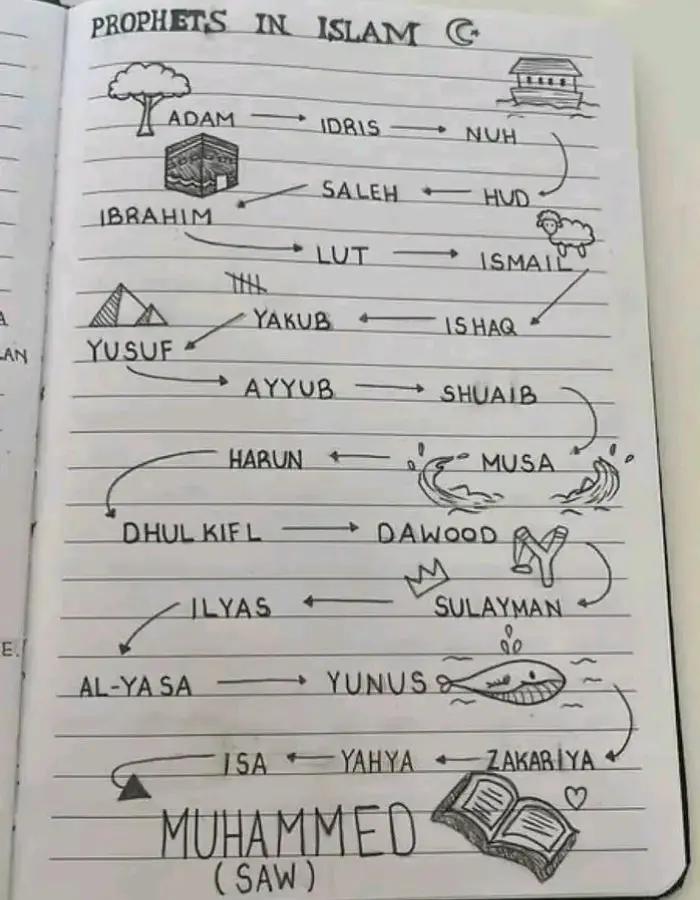 PROPHETS IN ISLAM
ADAM IDRIS NUH
SALEH HUD
IBRAHIM
LUT ISMAIL
YAKUB ISHAQ
YUSUF
AYYUB SHUAIB
HARUN MUSA
DHULKIFL DAWOOD
ILYAS SULAYMAN
AL-YASA YUNUS
ISA YAHYA ZAKARIYA
MUHAMMED
(SAW)